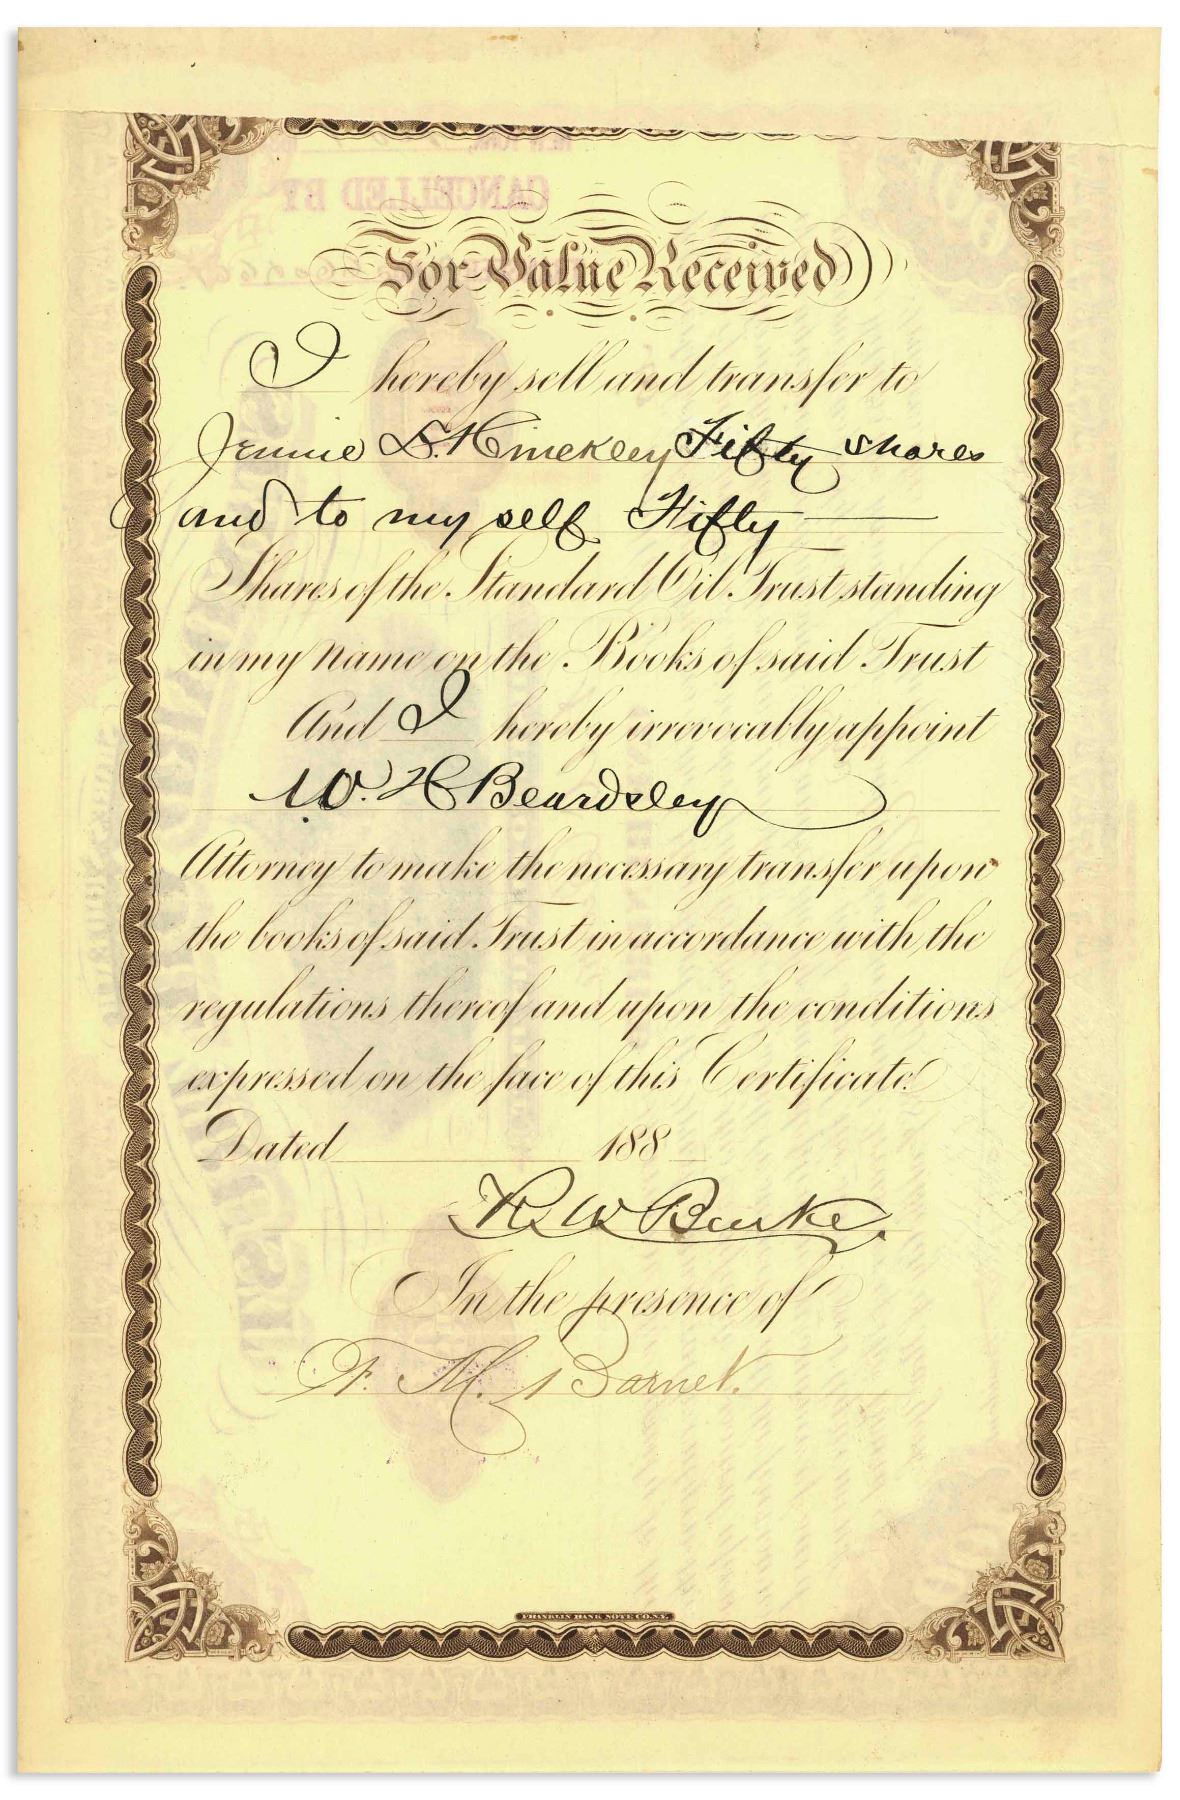 CANCELLED BY
For Value Received
I hereby sell and transfer to
Jennie S. Hinckley Fifty shares
and to my self Fifty
Shares of the Standard Oil Trust standing
in my name on the Books of said Trust
And I hereby irrevocably appoint
W. H Beardsley
Attorney to make the necessary transfer upon
the books of said Trust in accordance with the
regulations thereof and upon the conditions
expressed on the face of this Certificate
Dated 188
R W Burke.
In the presence of
F. M. Barnet.
FRANKLIN BANK NOTE CO. N.Y.